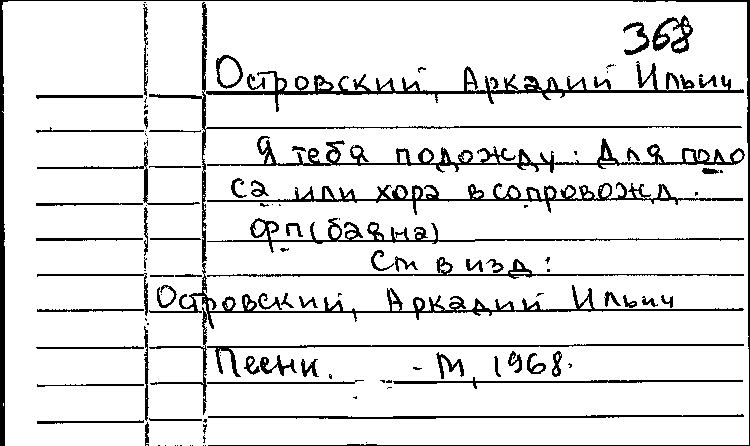 368
Островский, Аркадий Ильич
Я тебя подожду: Для голо
са или хора в сопровожд.
фп (баяна)
См в изд:
Островский, Аркадий Ильич
Песни. - М, 1968.